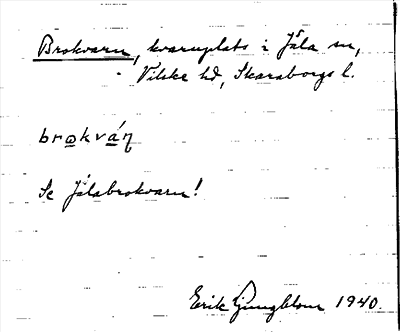 Brokvarn, kvarnplats i Jäla sn,
Vilske hd, Skaraborgs l.
brokván
Se Jälabrokvarn!
Erik Ljungblom 1940.